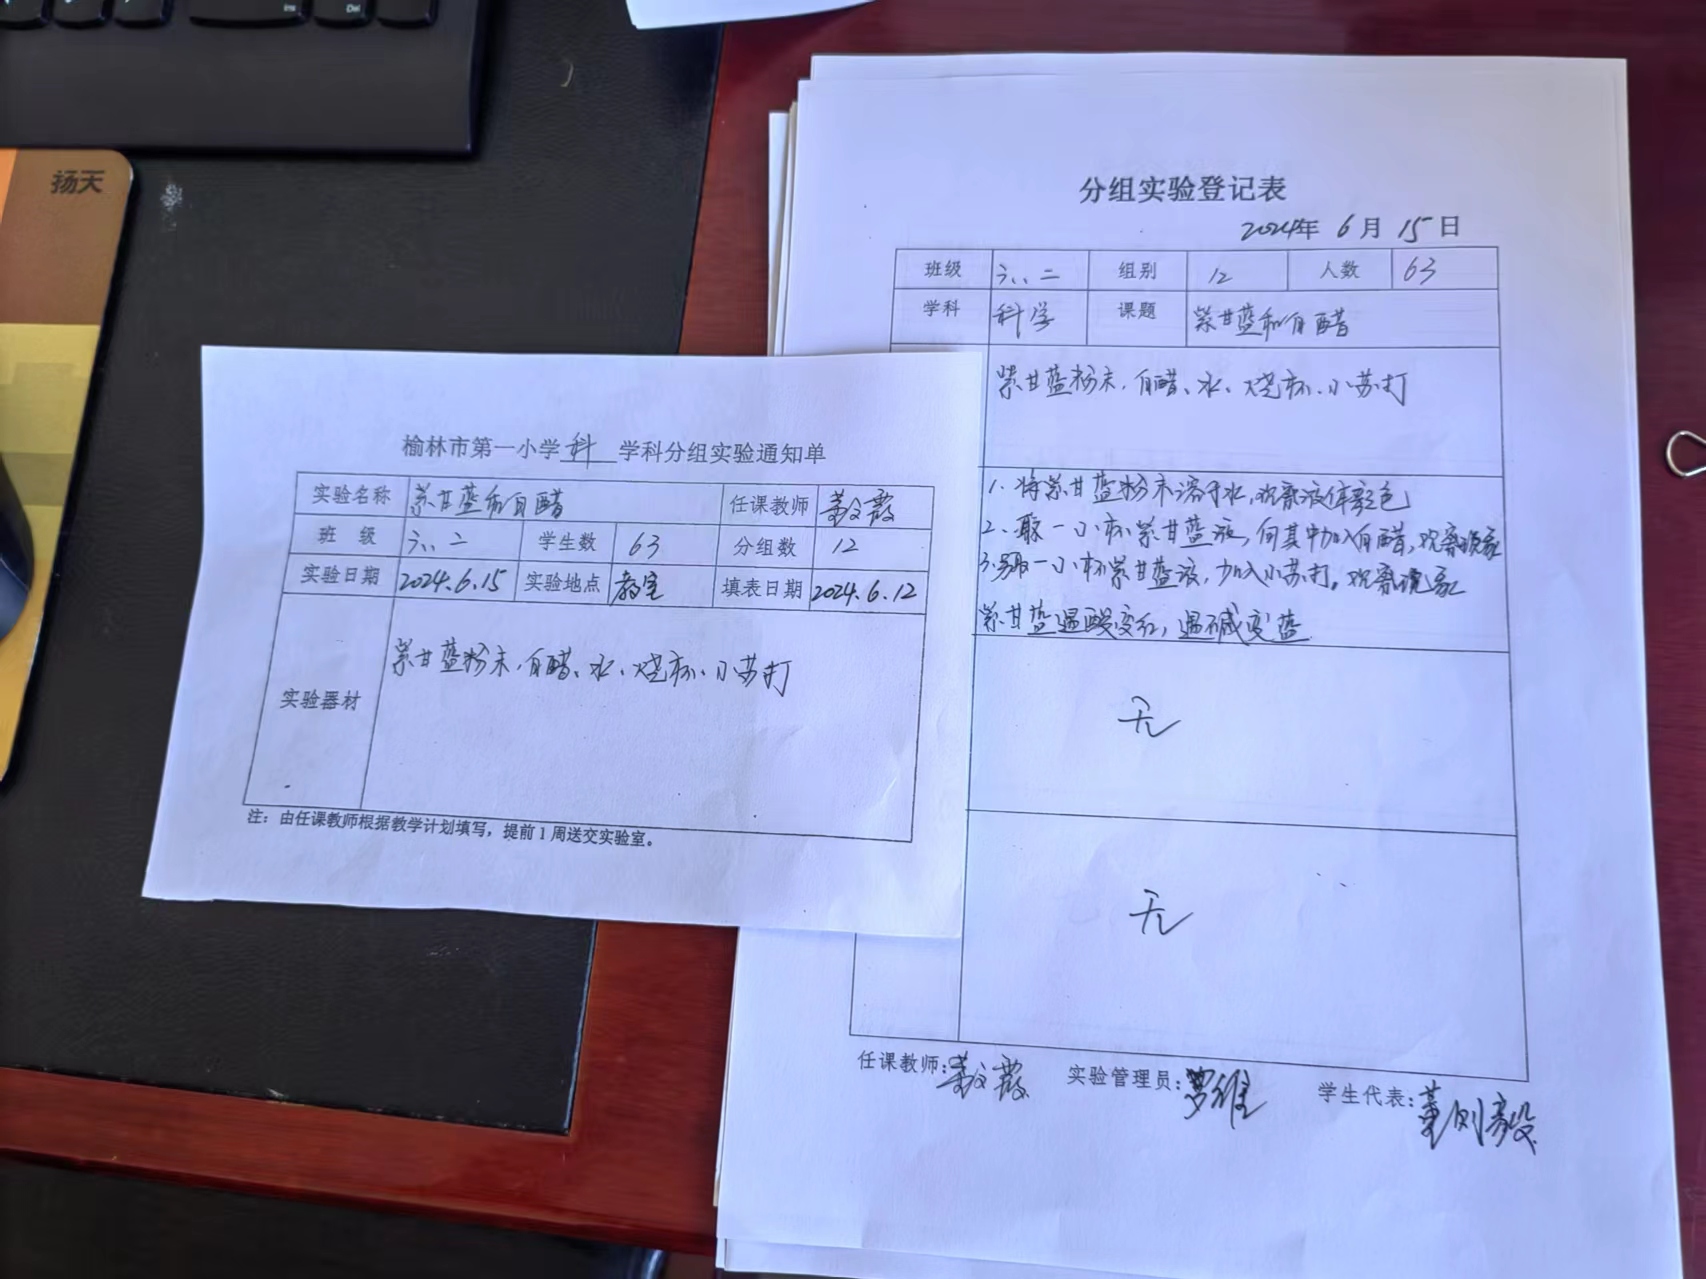 Ins
Del
扬天
榆林市第一小学 科 学科分组实验通知单
实验名称 紫甘蓝和白醋 任课教师
班 级 六、二 学生数 63 分组数 12
实验日期 2024.6.15 实验地点 教室 填表日期 2024.6.12
实验器材 紫甘蓝粉末、白醋、水、烧杯、小苏打
注：由任课教师根据教学计划填写，提前1周送交实验室。
分组实验登记表
2024年 6月 15日
班级 六、二 组别 12 人数 63
学科 科学 课题 紫甘蓝和白醋
紫甘蓝粉末、白醋、水、烧杯、小苏打
1. 将紫甘蓝粉末溶于水，观察液体颜色
2. 取一小杯紫甘蓝液，向其中加入白醋，观察现象
3. 另取一小杯紫甘蓝液，加入小苏打。观察现象
紫甘蓝遇酸变红，遇碱变蓝
无
无
任课教师： 实验管理员：罗维 学生代表：